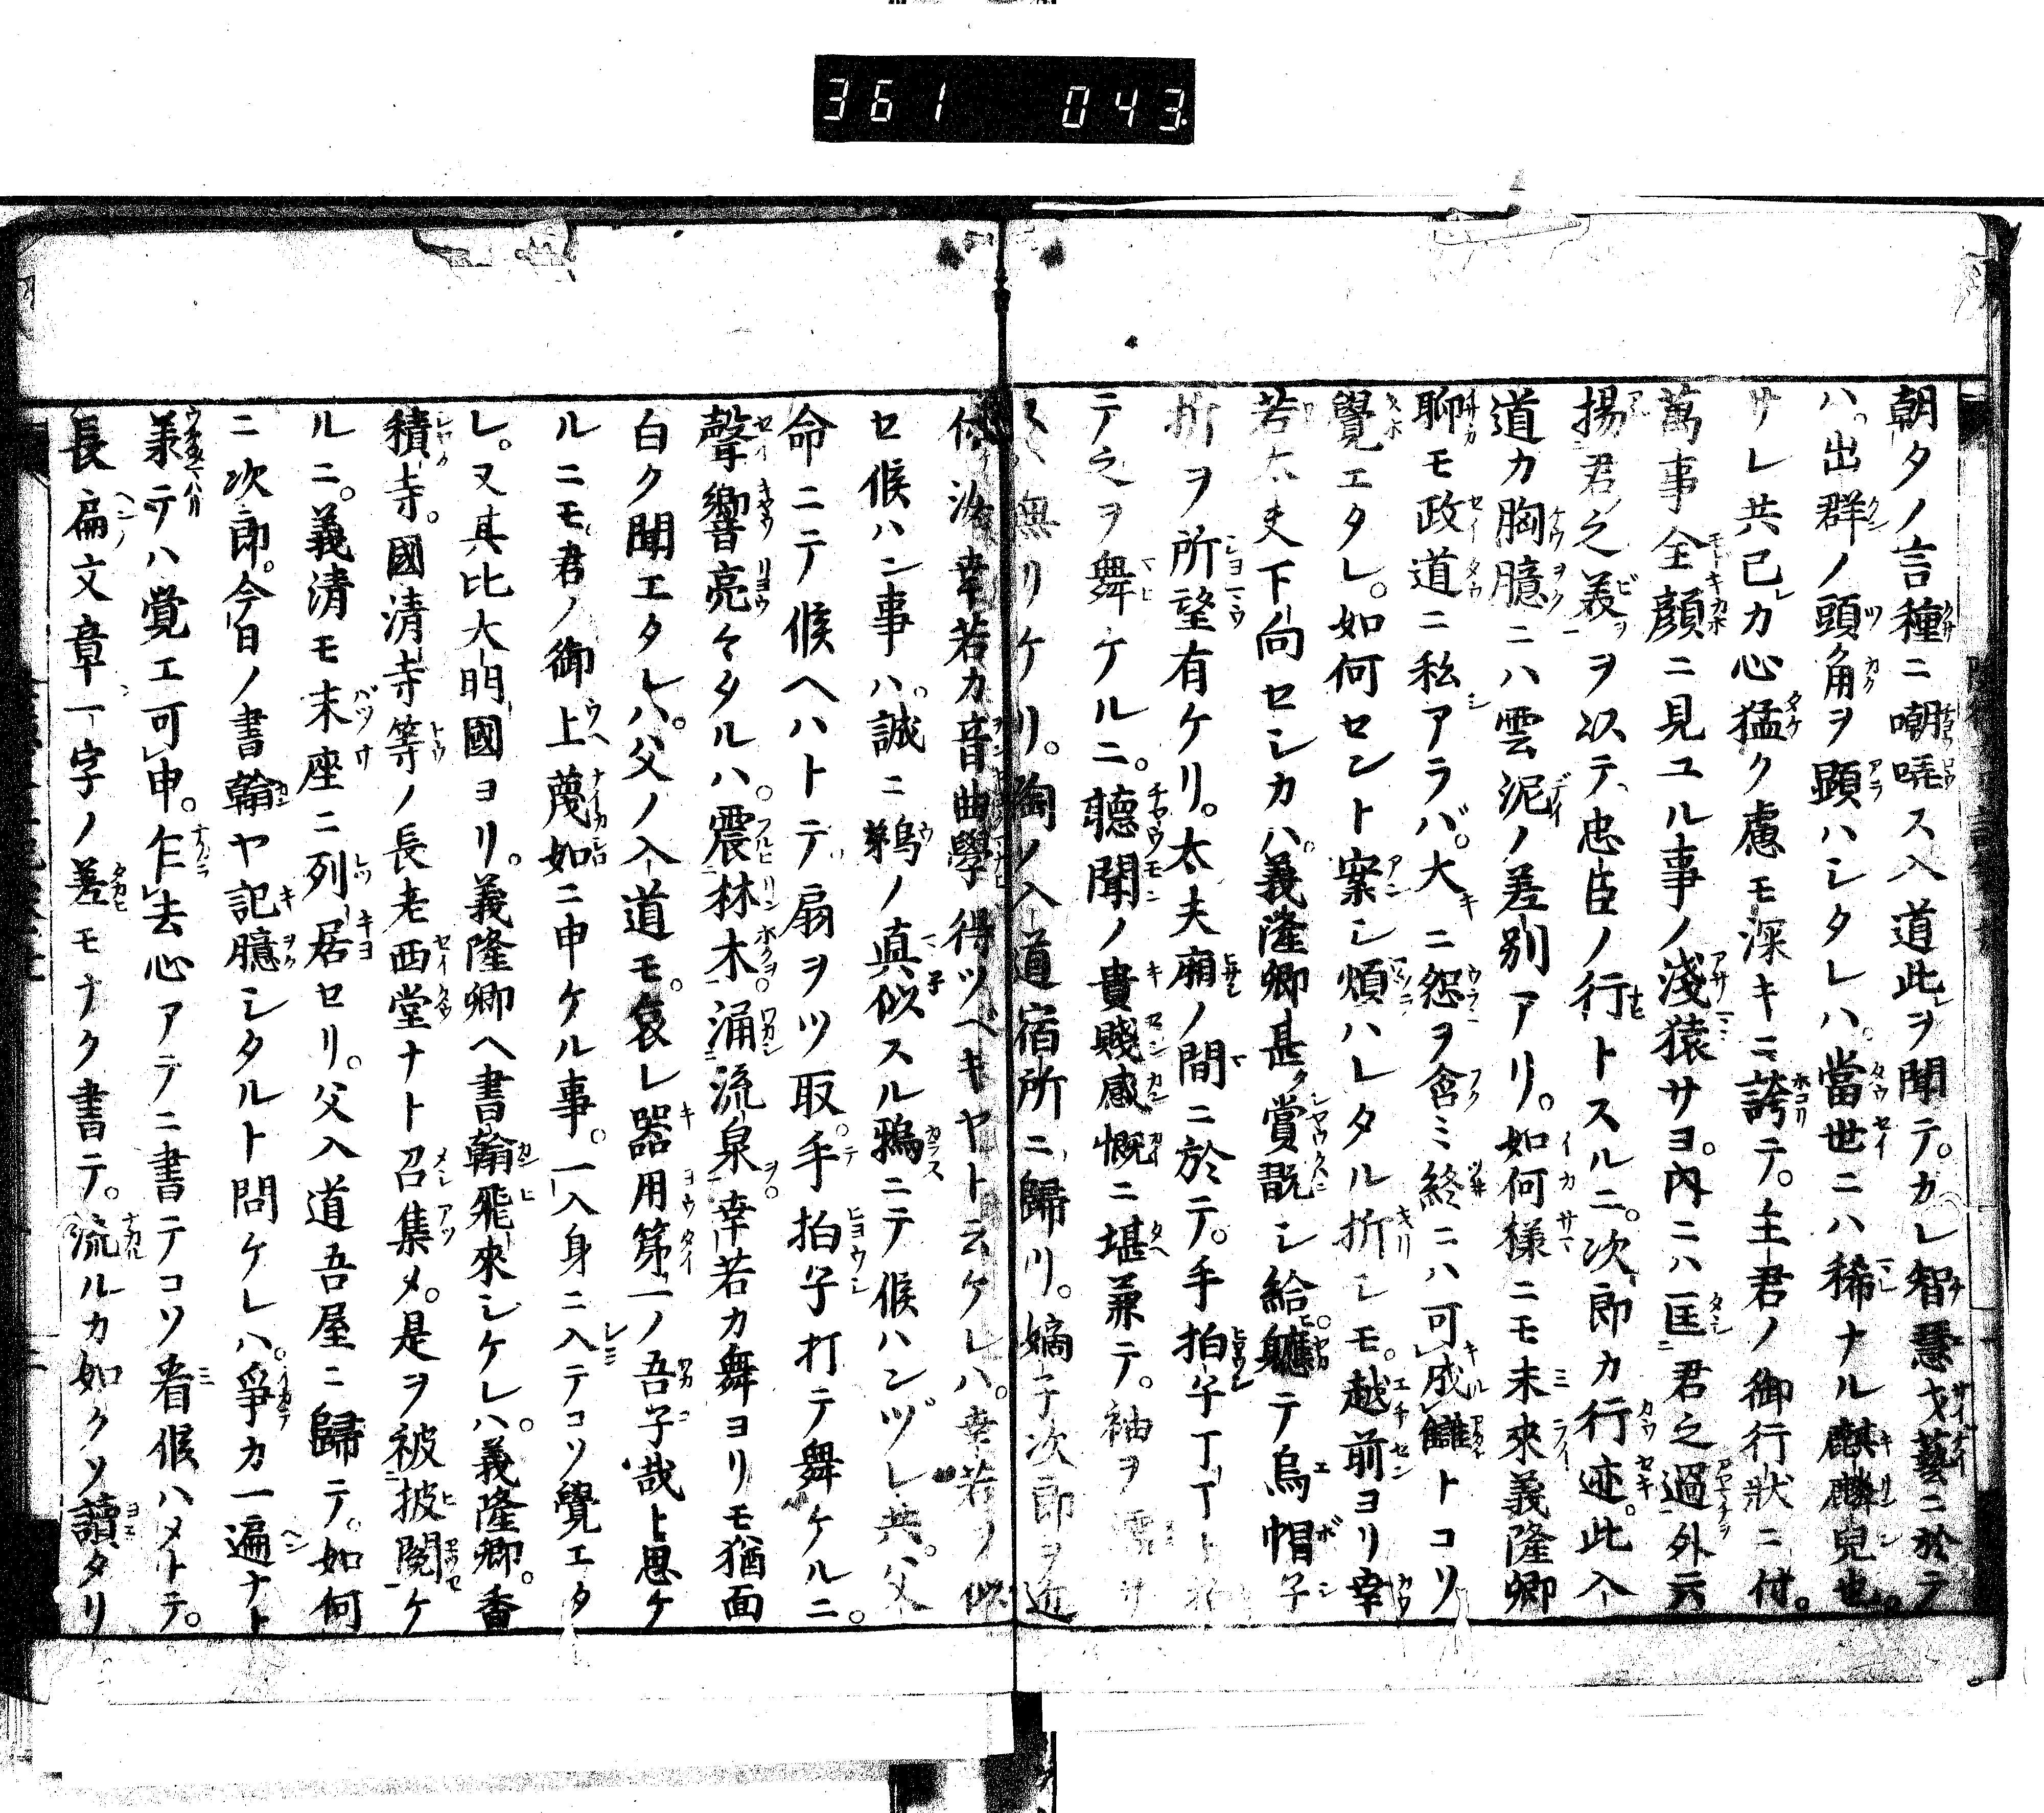 361 043
朝タノ言種ニ嘲哢ス入道此ヲ聞テ。カレ智慧才藝ニ於テ
ハ。出群ノ頭角ヲ顕ハシタレハ。當世ニハ稀ナル麒麟兒也。
サレ共己カ心猛ク慮モ深キニ誇テ。主君ノ御行狀ニ付。
萬事全顔ニ見ユル事ノ淺猿サヨ。内ニハ匡君之過外ニ
揚君之義ヲ以テ、忠臣ノ行トスルニ。次郎カ行迹。此入
道カ胸臆ニハ雲泥ノ差別アリ。如何樣ニモ未來義隆卿
聊モ政道ニ私アラバ。大ニ怨ヲ含ミ終ニハ可成讎トコソ
覺エタレ。如何セント案シ煩ハレタル折シモ。越前ヨリ幸
若太夫下向セシカハ。義隆卿甚賞翫シ給。軈テ烏帽子
折ヲ所望有ケリ。太夫廂ノ間ニ於テ。手拍子丁丁ト
テ之ヲ舞ケルニ。聽聞ノ貴賤感慨ニ堪兼テ。袖ヲ
無リケリ。陶ノ入道宿所ニ歸リ。嫡子次郎ヲ近
汝幸若カ音曲學得ツヘキヤト云ケレハ。幸若ノ似
セ候ハン事ハ。誠ニ鵜ノ真似スル鴉ニテ候ハンヅレ共。父
命ニテ候ヘハトテ扇ヲツ取。手拍子打テ舞ケルニ。
聲響亮々タルハ。震林木。涌流泉幸若カ舞ヨリモ猶面
白ク聞エタレハ。父ノ入道モ。哀レ器用第一ノ吾子哉ト思ケ
ルニモ。君ノ御上蔑如ニ申ケル事。一入身ニ入テコソ覺エタ
レ。又其比大明國ヨリ。義隆卿ヘ書翰飛來シケレハ。義隆卿。香
積寺。國清寺等ノ長老西堂ナト召集メ。是ヲ被披閲ケ
ルニ。義清モ末座ニ列居セリ。父入道吾屋ニ歸テ。如何
ニ次郎。今日ノ書翰ヤ記臆シタルト問ケレハ。爭カ一遍ナト
義テハ覚エ可申。乍去心アテニ書テコソ看候ハメトテ。
長扁文章一字ノ差モナク書テ。流ルカ如クソ讀タリ